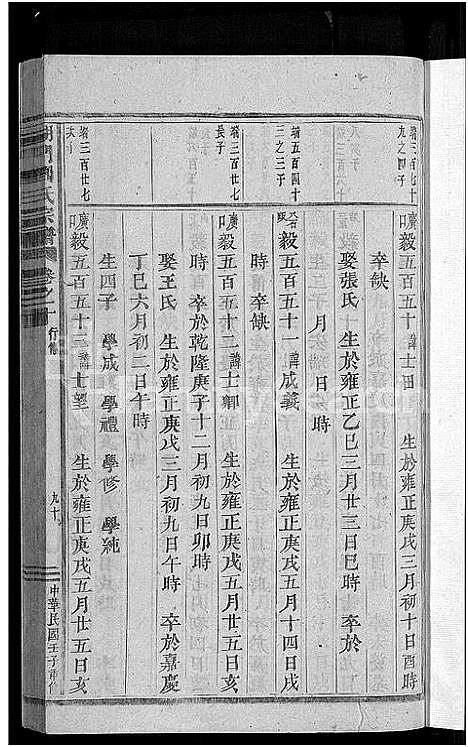 端三百七十
九之四子
廣口毅五百五十 諱士田 生於雍正庚戌三月初十日酉時
卒缺
娶張氏 生於雍正乙巳三月廿三日巳時 卒於
月 日 時
端五百四十
三之三子
毅五百五十一 諱成義 生於雍正庚戌五月十四日戌
時 卒缺
端三百廿七
長子
廣口毅五百五十二 諱士卿 生於雍正庚戌五月廿五日亥
時 卒於乾隆庚子十二月初九日卯時
娶王氏 生於雍正庚戌三月初九日午時 卒於嘉慶
丁巳六月初二日午時
生四子 學成 學禮 學修 學純
端三百廿七
次子
廣口毅五百五十三 諱士望 生於雍正庚戌五月廿五日亥
氏宗譜 卷之一 行傳
九十
中華民國壬子重修